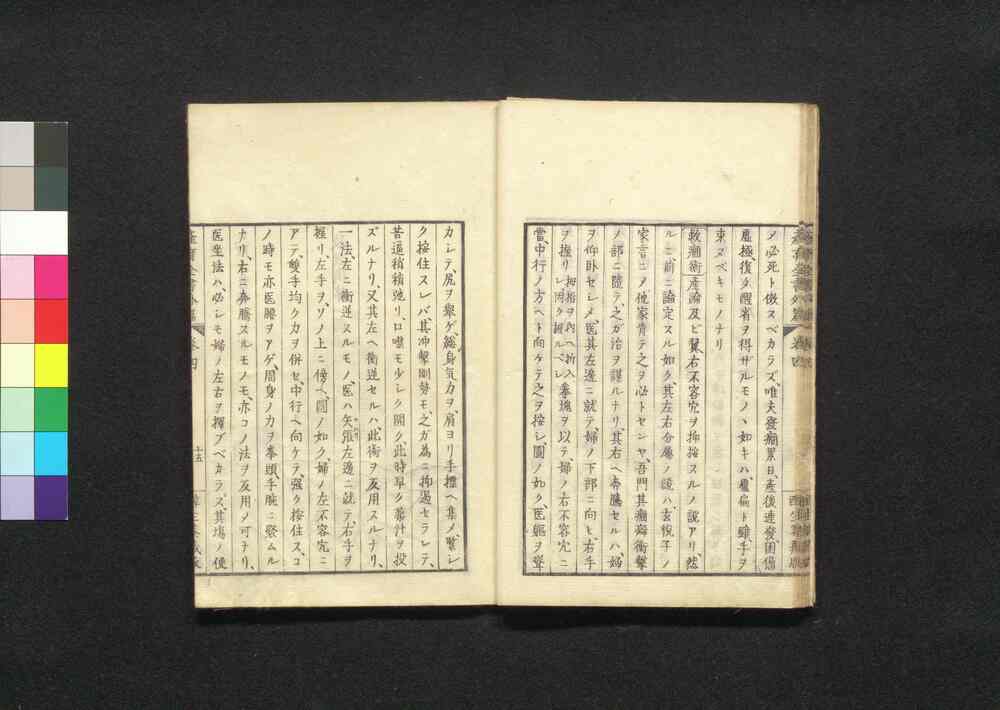 メ必死ト做スベカラズ、唯夫發癇累日、産後連發、困憊
虛極、復タ醒省ヲ得ザルモノヽ如キハ、扁ト雖手ヲ
束ヌベキモノナリ
救癇術 産論及ビ翼、右不容穴ヲ抑按スルノ說アリ、然
ルニ、前ニ論定スル如ク、其左右分屬ノ說ハ、玄悅子ノ
家言ニメ、他家肯テ之ヲ必トセンヤ、吾門其癇癖衝擊
ノ部ニ隨テ、之ガ治ヲ謀ルナリ、其右ヘ奔騰セルハ、婦
ヲ仰臥セシメ、医其左邊ニ就テ、婦ノ下部ニ向ヒ、右手
ヲ握リ 拇指ヲ內ヘ折入レ固ク握ルベシ 拳塊ヲ以テ、婦ノ右不容穴ニ
當、中行ノ方ヘト向ケテ之ヲ按シ、圖ノ如ク、医軀ヲ聳
カシテ、尻ヲ擧ゲ、總身氣力ヲ、肩ヨリ手標ヘ集メ、緊シ
ク按住スレバ、其冲擊剛勢モ、之ガ為ニ抑遏セラレテ、
苦逼稍稍弛リ、口噤モ少シク開ク、此時早ク藥汁ヲ投
ズルナリ、又其左ヘ衝逆セルハ、此術ヲ反用スルナリ、
一法、左ニ衝逆スルモノ、医ハ矢張左邊ニ就テ、右手ヲ
握リ、左手ヲ、ソノ上ニ傍ヘ、圖ノ如ク、婦ノ左不容穴ニ
アテ、雙手均ク力ヲ併セ、中行ヘ向ケテ、强ク按住ス、コ
ノ時モ亦医腰ヲアゲ、周身ノ力ヲ拳頭手腕ニ聚ムル
ナリ、右ニ奔騰スルモノモ、亦コノ法ヲ反用メ可ナリ、
医坐法ハ、必シモ婦ノ左右ヲ擇ブベカラズ、其塲ノ便
卷四
十五